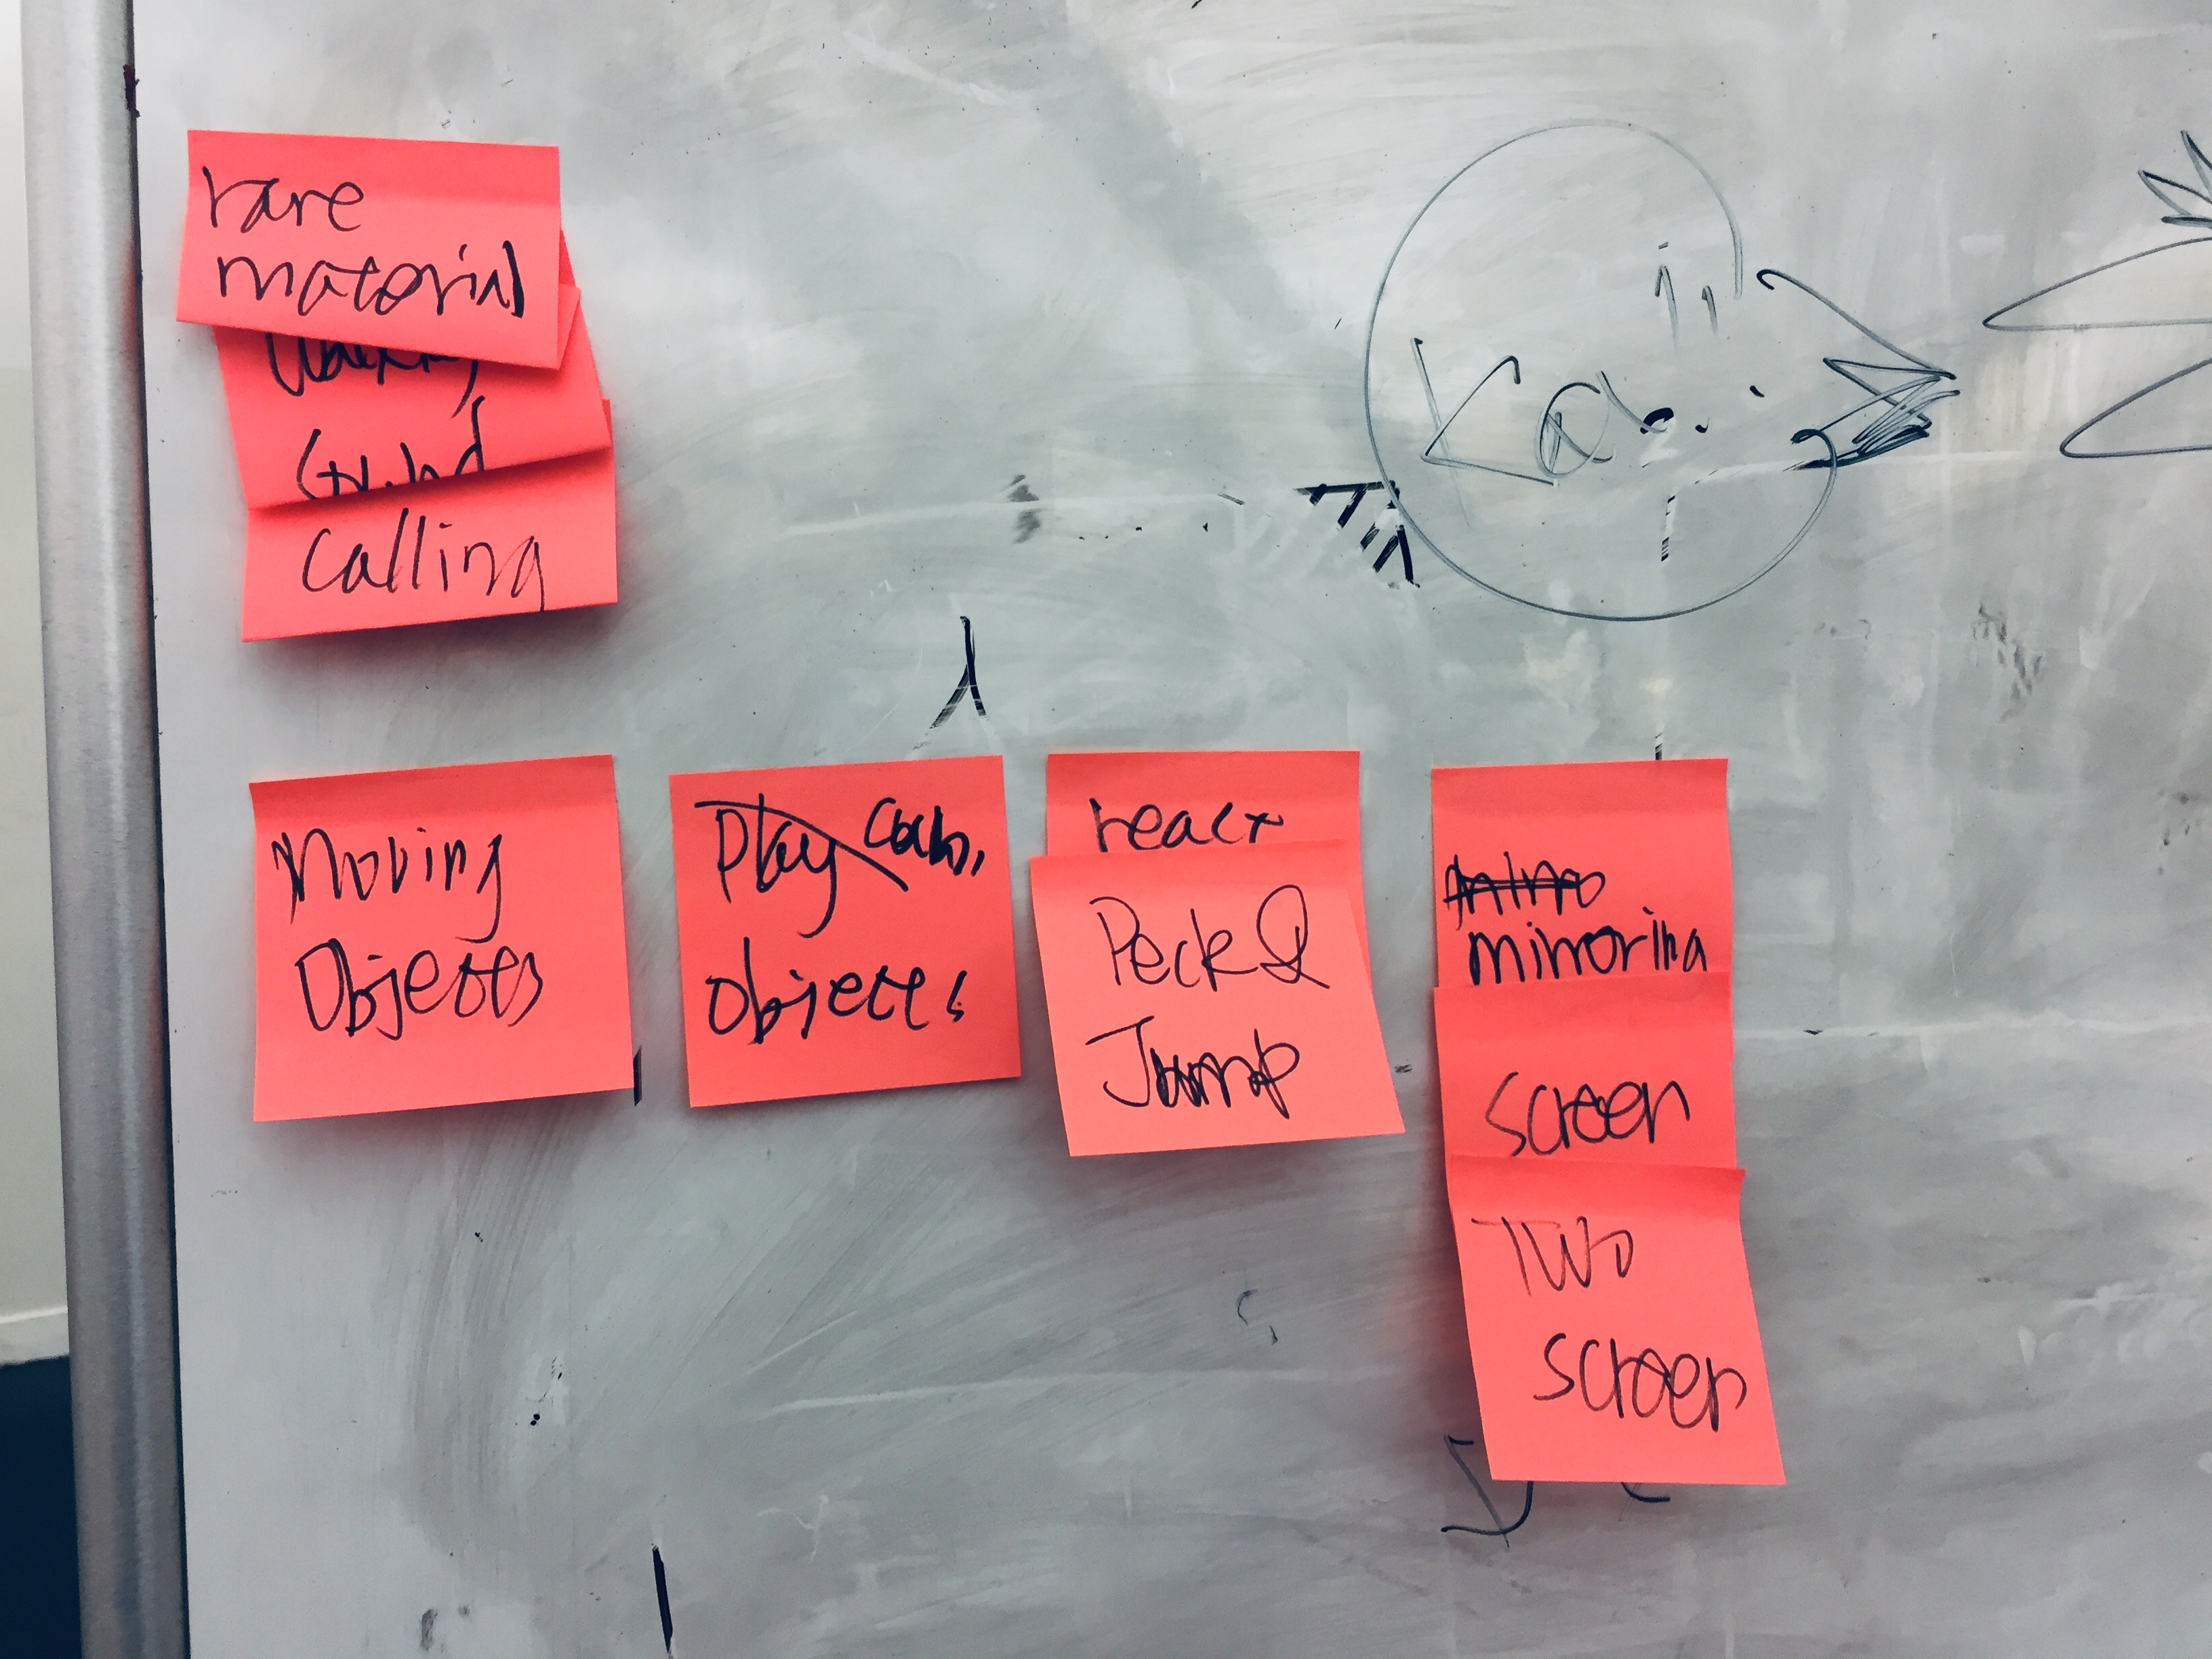 rare
material
calling
Moving
Objects
Play
objects
react
Peck &
Jump
mirroring
screen
Two
screen